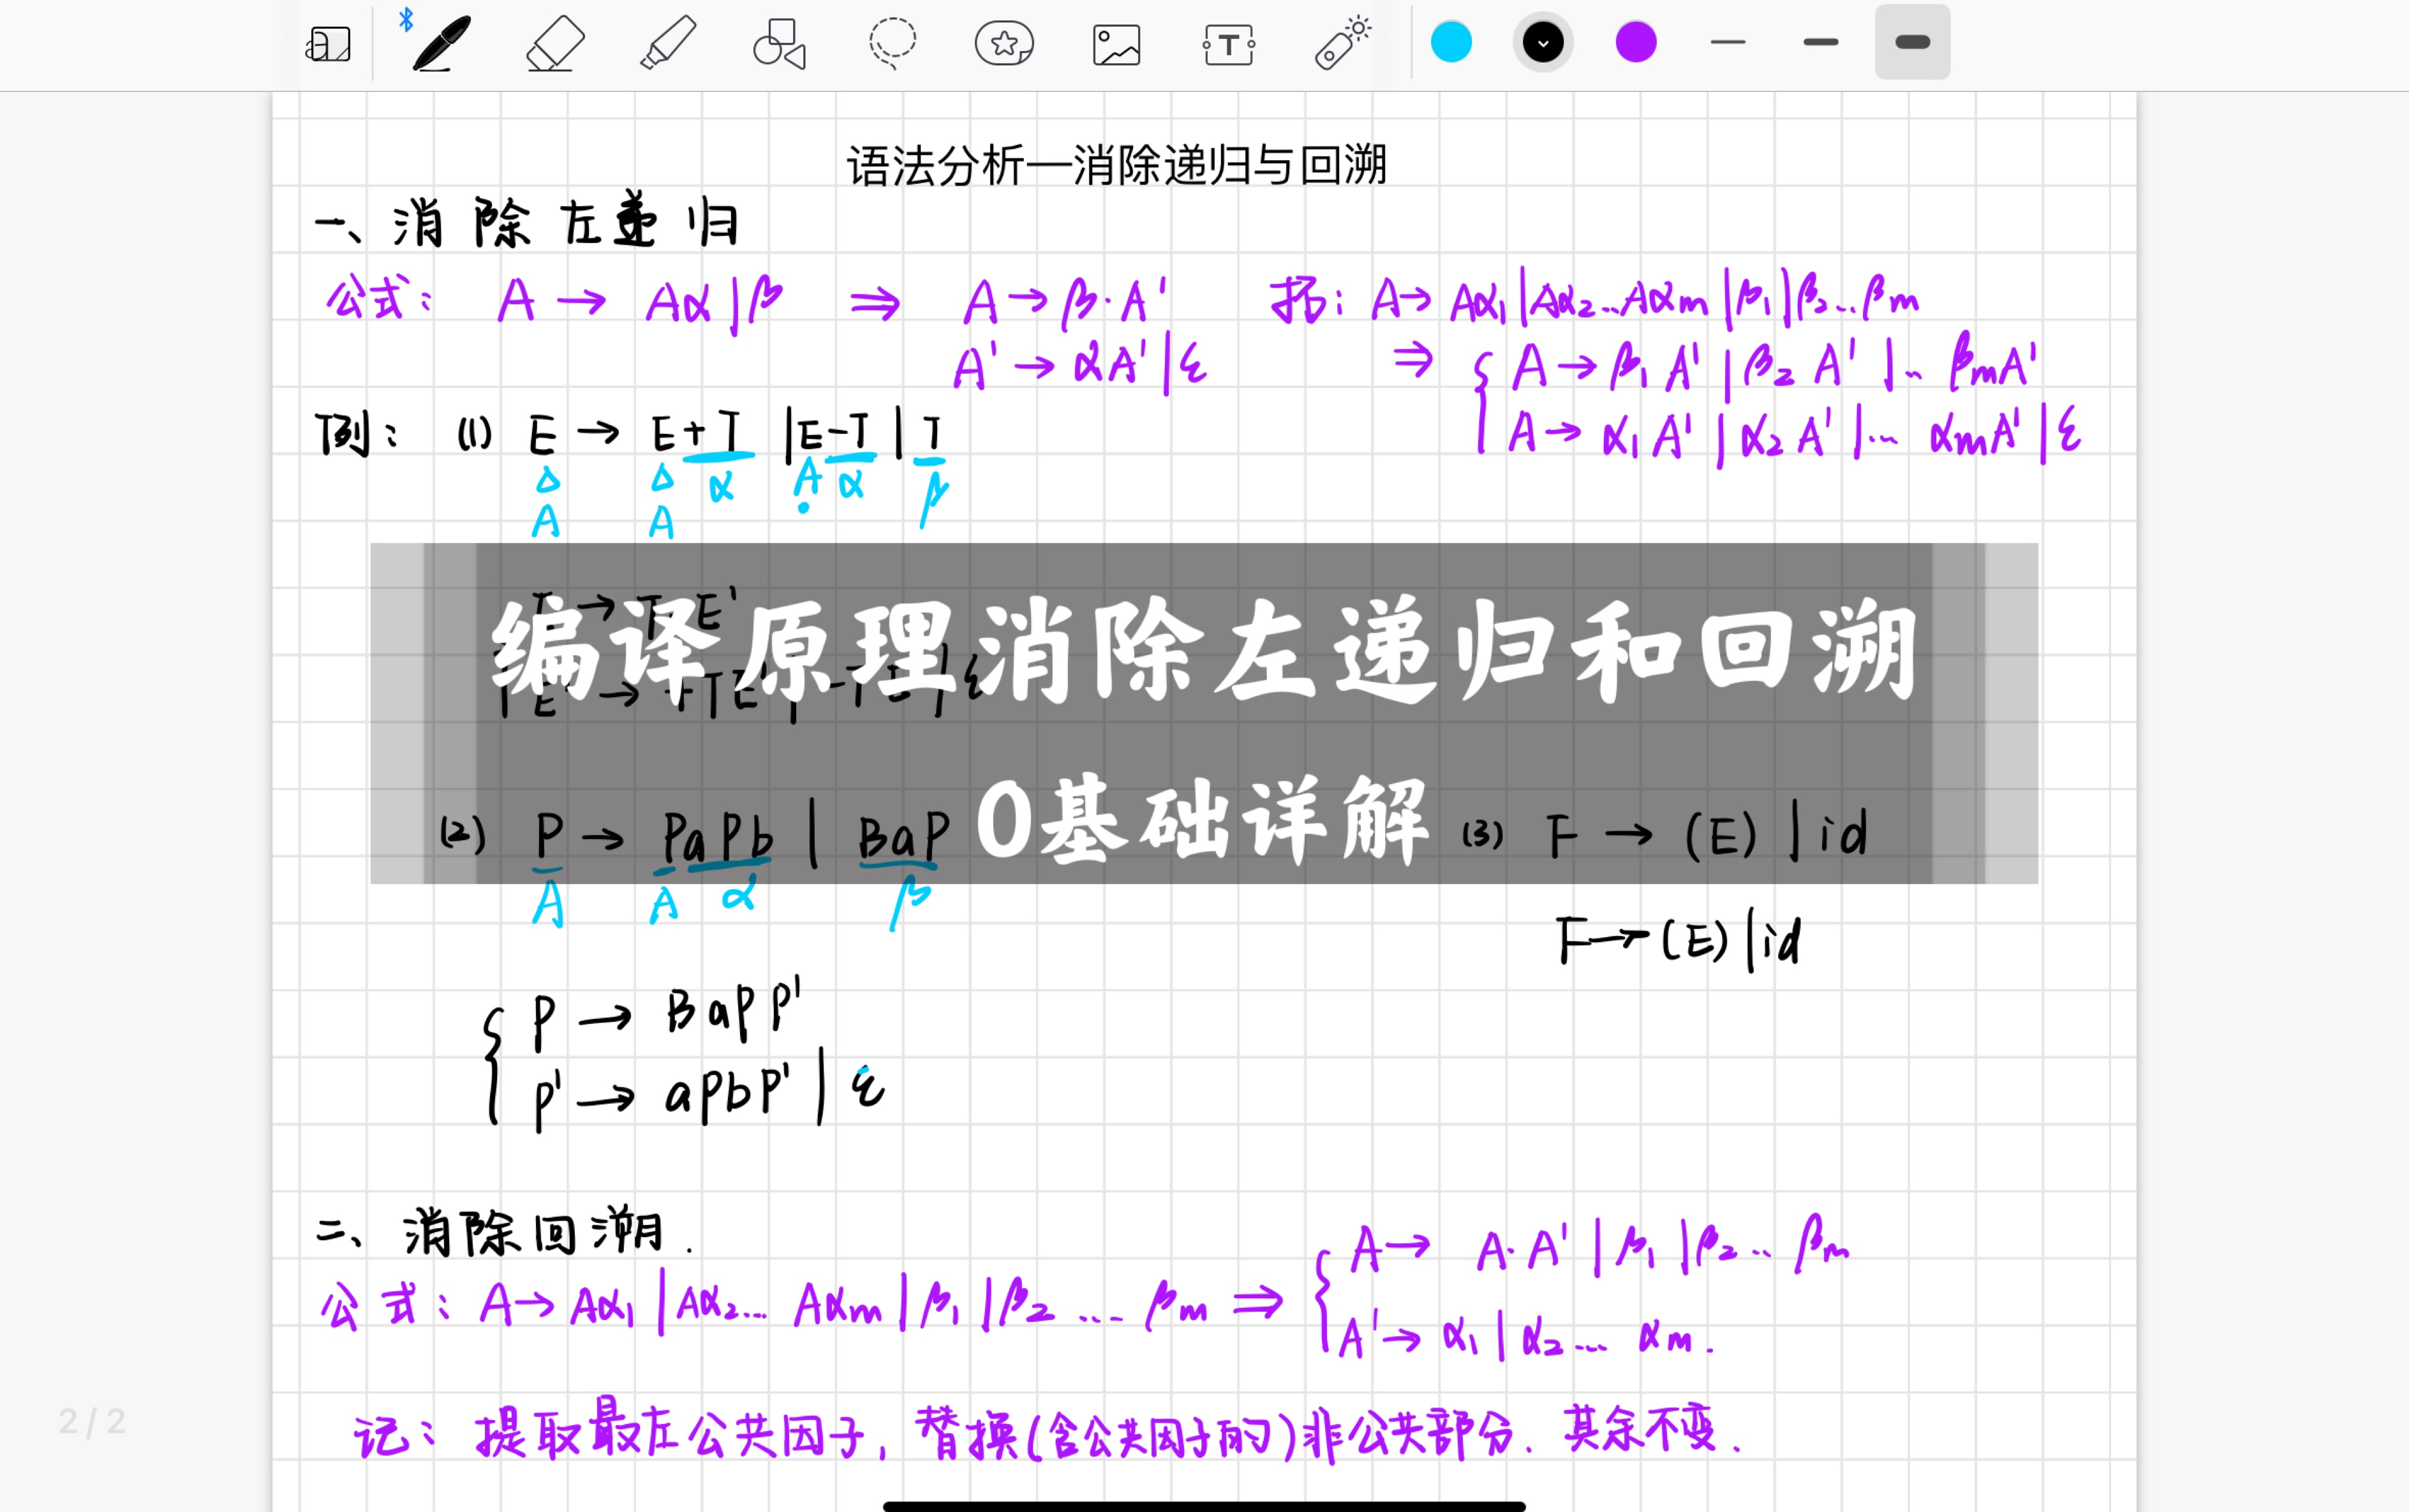 语法分析—消除递归与回溯
一、消除左递归
公式: A → Aα|β ⇒ A → β·A' 拓: A → Aα₁|Aα₂...Aαm|β₁|β₂...βm
A' → αA'|ε ⇒ { A → β₁A'|β₂A'|... βmA'
A → α₁A'|α₂A'|... αmA'|ε
例: (1) E → E+T |E-T | T
△ △ α A α β
A A
E → T E'
编译原理消除左递归和回溯
E' → +TE' | -TE' | ε
0基础详解
(2) P → PaPb | BaP (3) F → (E) | id
A A α β
F → (E)|id
{ P → BaPP'
P' → aPbP' | ε
二、消除回溯.
公式: A → Aα₁|Aα₂... Aαm|β₁|β₂...βm ⇒ { A → A·A'|β₁|β₂... βm
A' → α₁|α₂... αm.
记: 提取最左公共因子, 替换(含公共因子的)非公共部分. 其余不变.
2 / 2